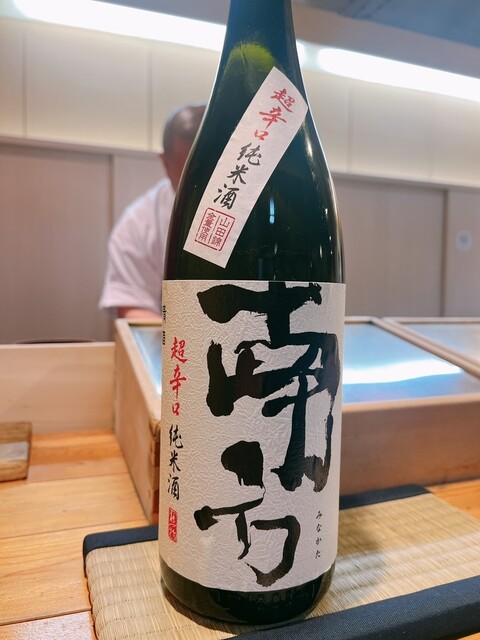 超辛口
純米酒
山田錦
全量使用
南方
みなかた
清酒
超辛口
純米酒